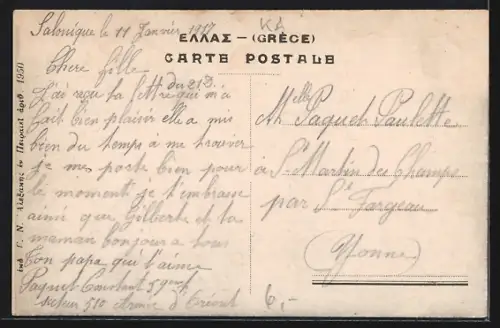 Salonique le 11 Janvier 1917
KA
ΕΛΛΑΣ – (GRÈCE)
CARTE POSTALE
Chere fille
J'ai reçu ta lettre du 21 D. qui m'a
fait bien plaisir elle a mis
bien du temps à me trouver
je me porte bien pour
le moment je t'embrasse
ainsi que Gilberte et ta
maman bonjour a tous
Ton papa qui t'aime
Paquet Constant 59
secteur 510 Armée d'Orient
Melle Paquet Paulette
à St Martin des Champs
par St Fargeau
(Yonne)
6,-